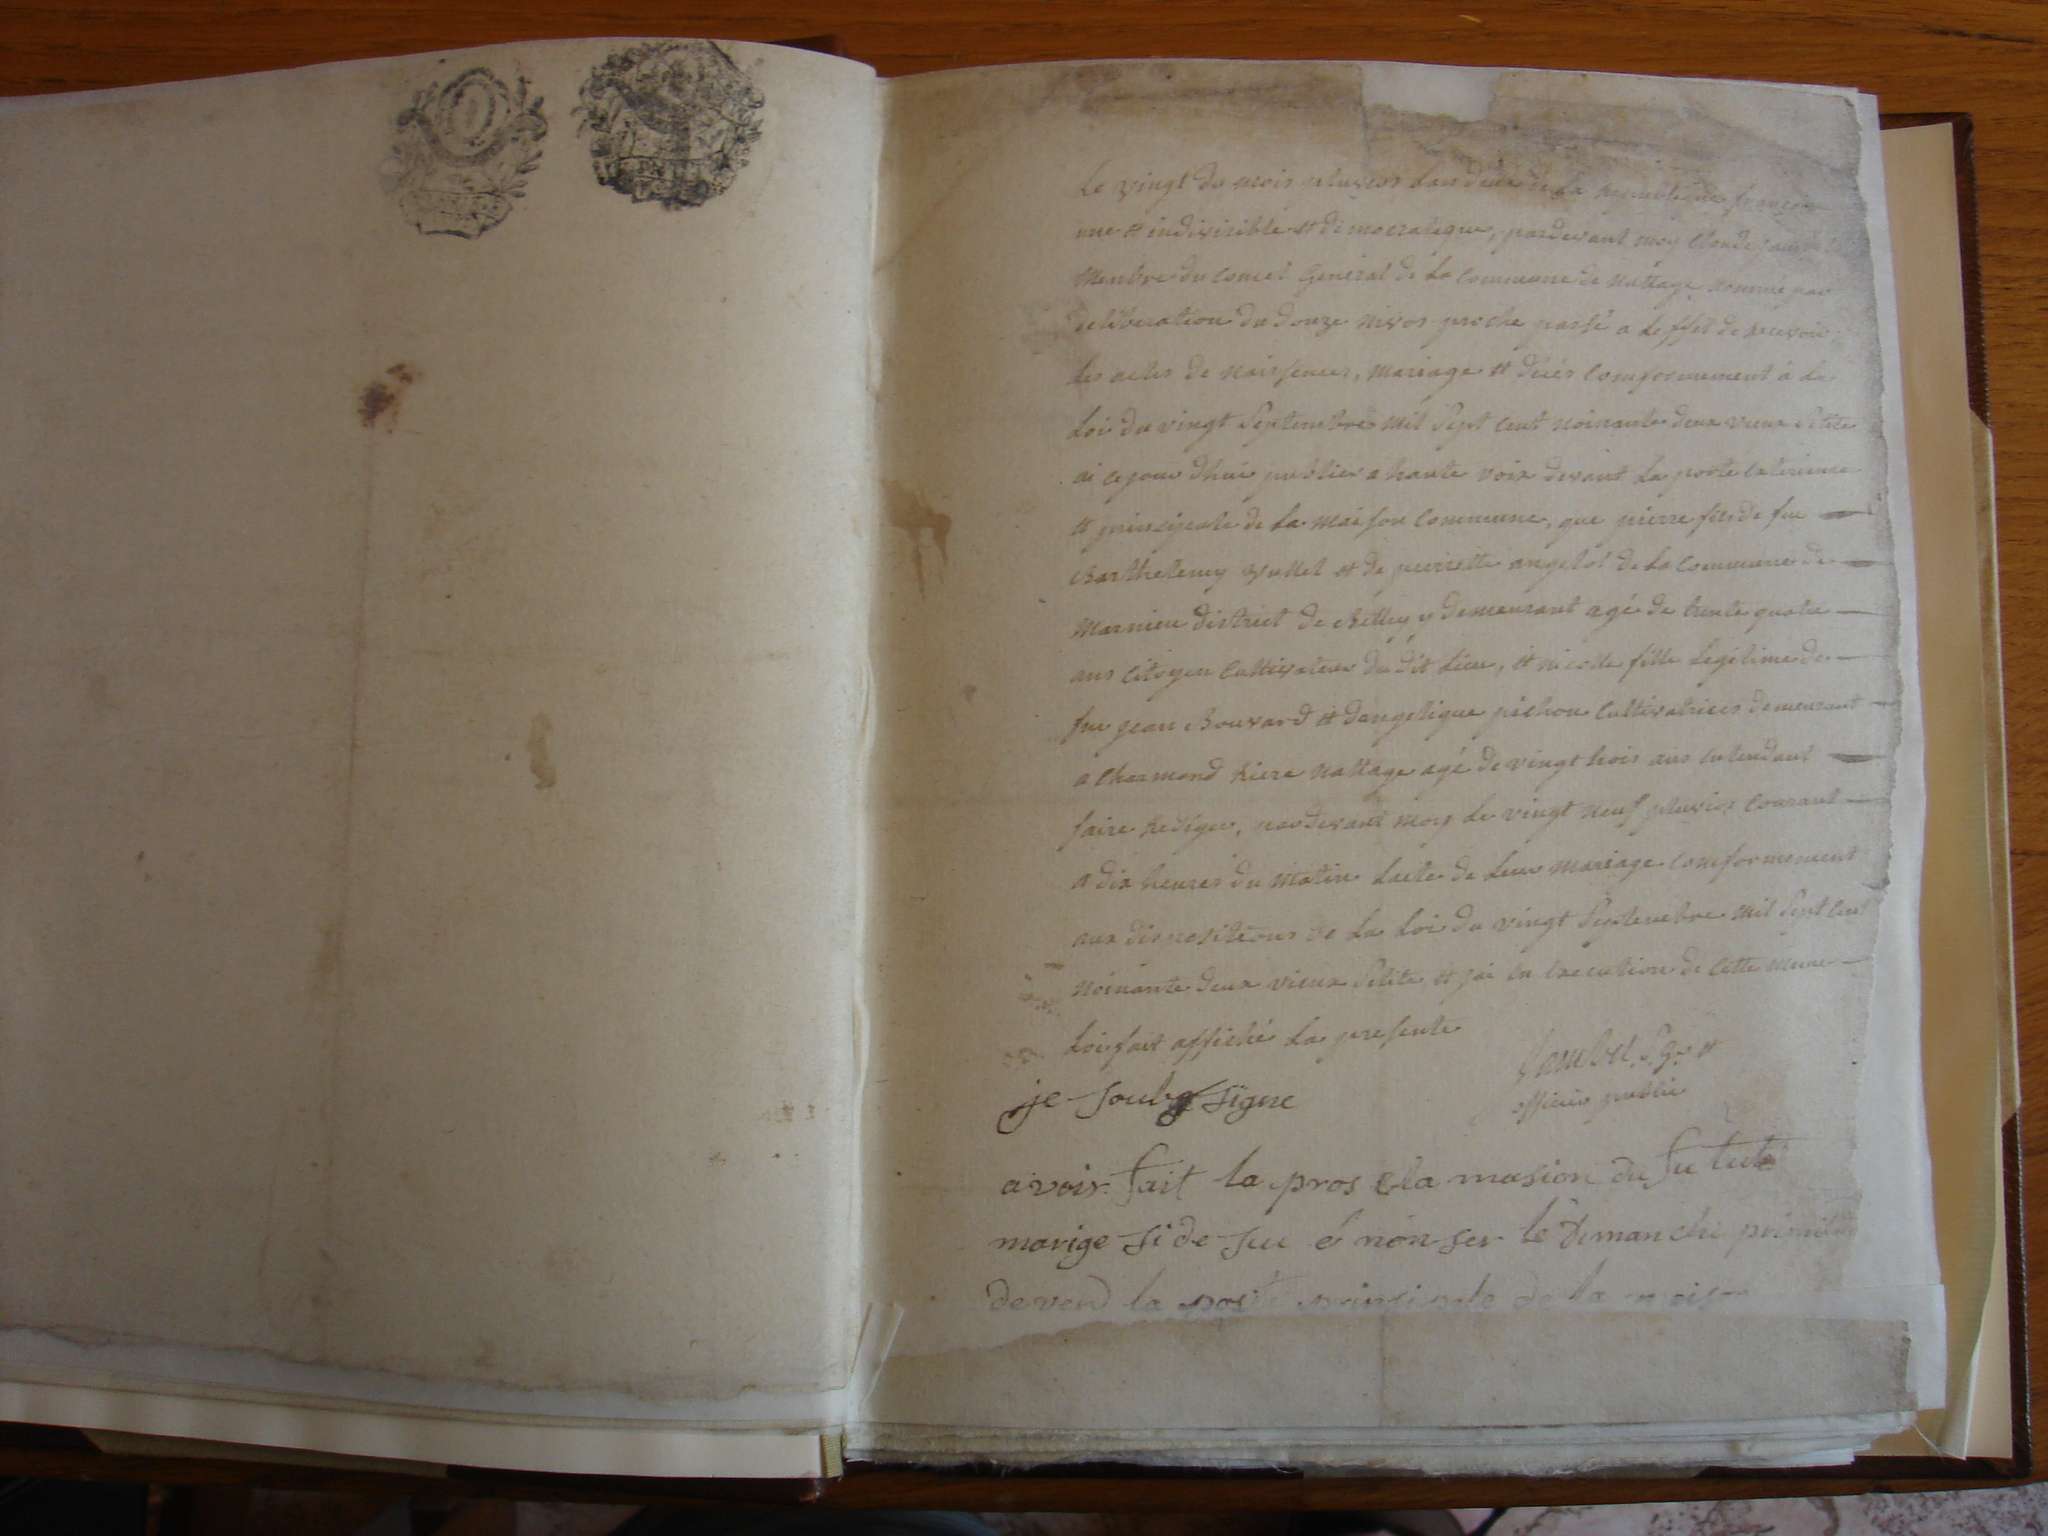 Le vingt du mois pluvios Lan deux de La republique françoise
une et indivisible et democratique, pardevant moy Claude
Membre du conseil General de La Commune de Nattage nommé par
deliberation du douze nivos proche passé a Leffet de recevoir
Les actes de Naissences, Mariage et décès Comformement à La
Loi du vingt Septembre Mil Sept Cent Noinante deux vieux Stile
ai ce jour dhui publier a haute voix devant La porte Exterieure
et principale de La Maison Commune, que pierre fils de feu
Barthelemy vullet et de pierrette angelot de La Commune de
Marnieu district de Belley y demeurant agé de trente quatre
ans Citoyen Cultivateur du dit Lieu, et nicolle fille Legitime de
feu jean Bouvard et dangelique pichon Cultivatrices demeurant
a Charmond riere Nattage agé de vingt trois ans Entendant
faire rediger, pardevant moy Le vingt neuf pluvios Courant
a dix heures du Matin Lacte de Leur Mariage Comformement
aux dispositions de La Loi du vingt Septembre Mil Sept Cent
Noinante deux vieux Stile et jai en Execution de Cette meme
Loi fait affiché La presente
officier public
je soubg signe
avoir fait la pros cla masion du fu tut
marige si de su é nonser le dimanche
devend la porte prinsipale de la maison